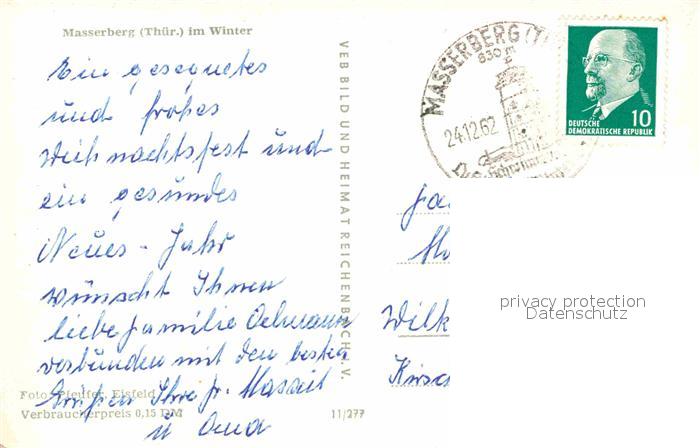 Masserberg (Thür.) im Winter
Ein gesegnetes
und frohes
Weihnachtsfest und
ein gesundes
Neues - Jahr
wünscht Ihnen
liebe Familie Oehmann
verbunden mit den besten
Grüßen Ihre Fr.
u Oma
Foto: Pfeufer, Eisfeld
Verbraucherpreis 0,15 DM
11/277
VEB BILD UND HEIMAT REICHENBACH I. V.
MASSERBERG (T
830 m
24.12.62
10
DEUTSCHE
DEMOKRATISCHE REPUBLIK
Fa
Wilk
Kirsc
privacy protection
Datenschutz